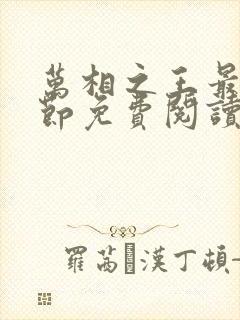 萬相之王最
節免費閱讀
羅茜漢丁頓-